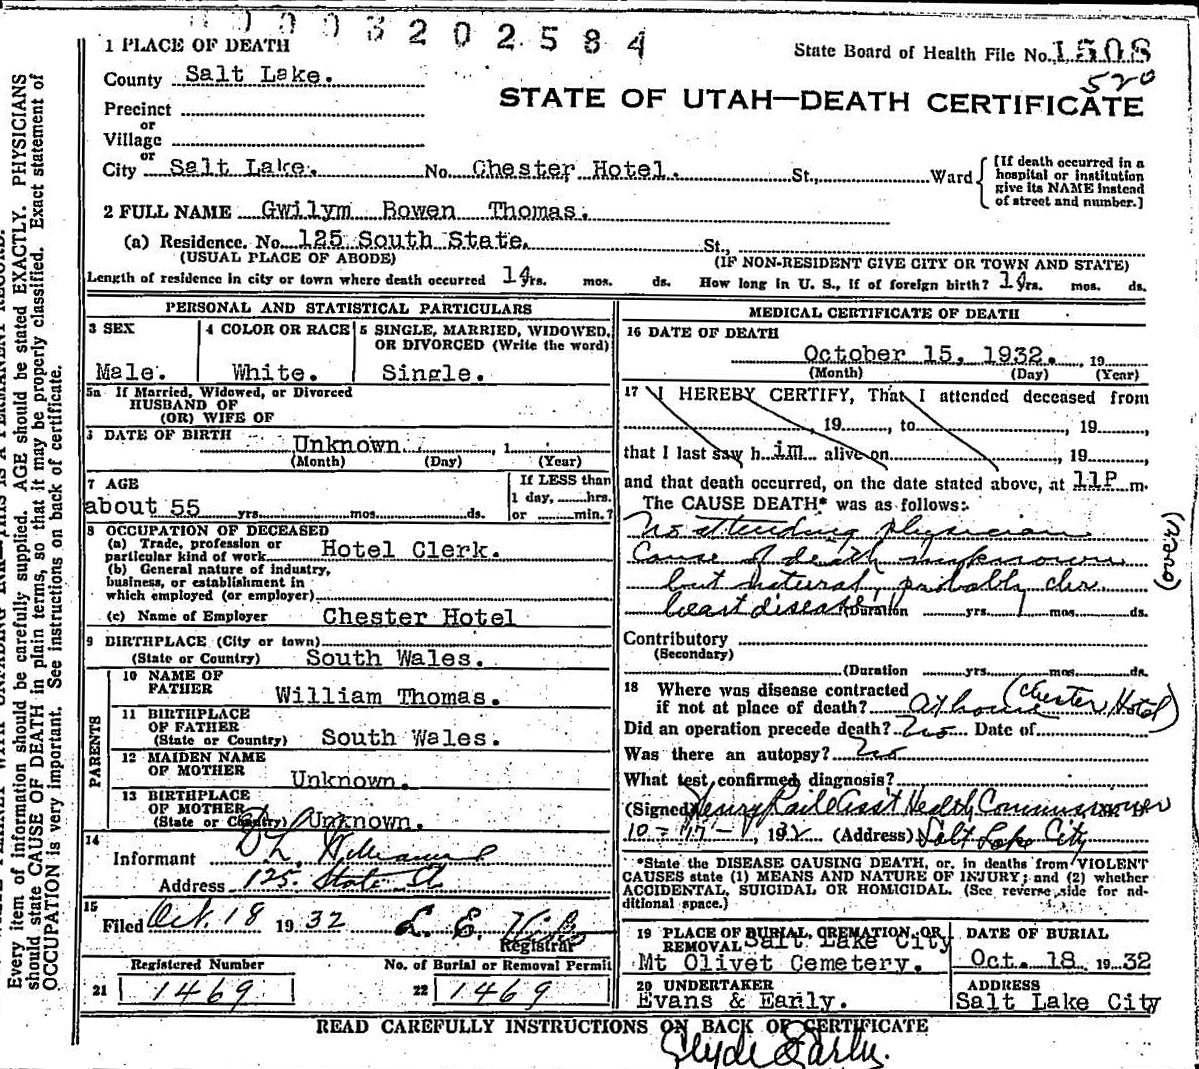 0003202584
1 PLACE OF DEATH
State Board of Health File No. 1508
520
County Salt Lake.
STATE OF UTAH—DEATH CERTIFICATE
Precinct
or
Village
or
City Salt Lake. No. Chester Hotel. St., Ward
[If death occurred in a
hospital or institution
give its NAME instead
of street and number.]
2 FULL NAME Gwilym Bowen Thomas.
(a) Residence. No. 125 South State. St.,
(USUAL PLACE OF ABODE) (IF NON-RESIDENT GIVE CITY OR TOWN AND STATE)
Length of residence in city or town where death occurred 14 yrs. mos. ds. How long in U. S., if of foreign birth? 14 yrs. mos. ds.
PERSONAL AND STATISTICAL PARTICULARS
3 SEX
Male.
4 COLOR OR RACE
White.
5 SINGLE, MARRIED, WIDOWED,
OR DIVORCED (Write the word)
Single.
5a If Married, Widowed, or Divorced
HUSBAND OF
(OR) WIFE OF
6 DATE OF BIRTH Unknown. , 1
(Month) (Day) (Year)
7 AGE
about 55 yrs. mos. ds.
If LESS than
1 day, hrs.
or min.?
8 OCCUPATION OF DECEASED
(a) Trade, profession or
particular kind of work Hotel Clerk.
(b) General nature of industry,
business, or establishment in
which employed (or employer)
(c) Name of Employer Chester Hotel
9 BIRTHPLACE (City or town)
(State or Country) South Wales.
PARENTS
10 NAME OF
FATHER William Thomas.
11 BIRTHPLACE
OF FATHER
(State or Country) South Wales.
12 MAIDEN NAME
OF MOTHER Unknown.
13 BIRTHPLACE
OF MOTHER
(State or Country) Unknown.
14
Informant D L
Address 125 State St
15
Filed Oct. 18 1932 L. E.
Registrar
Registered Number No. of Burial or Removal Permit
21 1469 22 1469
MEDICAL CERTIFICATE OF DEATH
16 DATE OF DEATH
October 15, 1932. , 19
(Month) (Day) (Year)
17 I HEREBY CERTIFY, That I attended deceased from
, 19 , to , 19
that I last saw h im alive on , 19
and that death occurred, on the date stated above, at 11P m.
The CAUSE DEATH* was as follows:
No attending physician
Cause of death unknown
but natural, probably chr.
heart disease (Duration yrs. mos. ds.
(over)
Contributory
(Secondary)
(Duration yrs. mos. ds.
18 Where was disease contracted
if not at place of death? At home (Chester Hotel)
Did an operation precede death? No Date of
Was there an autopsy? No
What test confirmed diagnosis?
(Signed) Henry Raile Asst Health Commissioner
10-17-, 1932 (Address) Salt Lake City
*State the DISEASE CAUSING DEATH, or, in deaths from VIOLENT
CAUSES state (1) MEANS AND NATURE OF INJURY; and (2) whether
ACCIDENTAL, SUICIDAL OR HOMICIDAL. (See reverse side for ad-
ditional space.)
19 PLACE OF BURIAL, CREMATION, OR
REMOVAL Salt Lake City
Mt Olivet Cemetery.
DATE OF BURIAL
Oct. 18 1932
20 UNDERTAKER
Evans & Early.
ADDRESS
Salt Lake City
READ CAREFULLY INSTRUCTIONS ON BACK OF CERTIFICATE
Clyde Early.
Every item of information should be carefully supplied. AGE should be stated EXACTLY. PHYSICIANS
should state CAUSE OF DEATH in plain terms, so that it may be properly classified. Exact statement of
OCCUPATION is very important. See instructions on back of certificate.